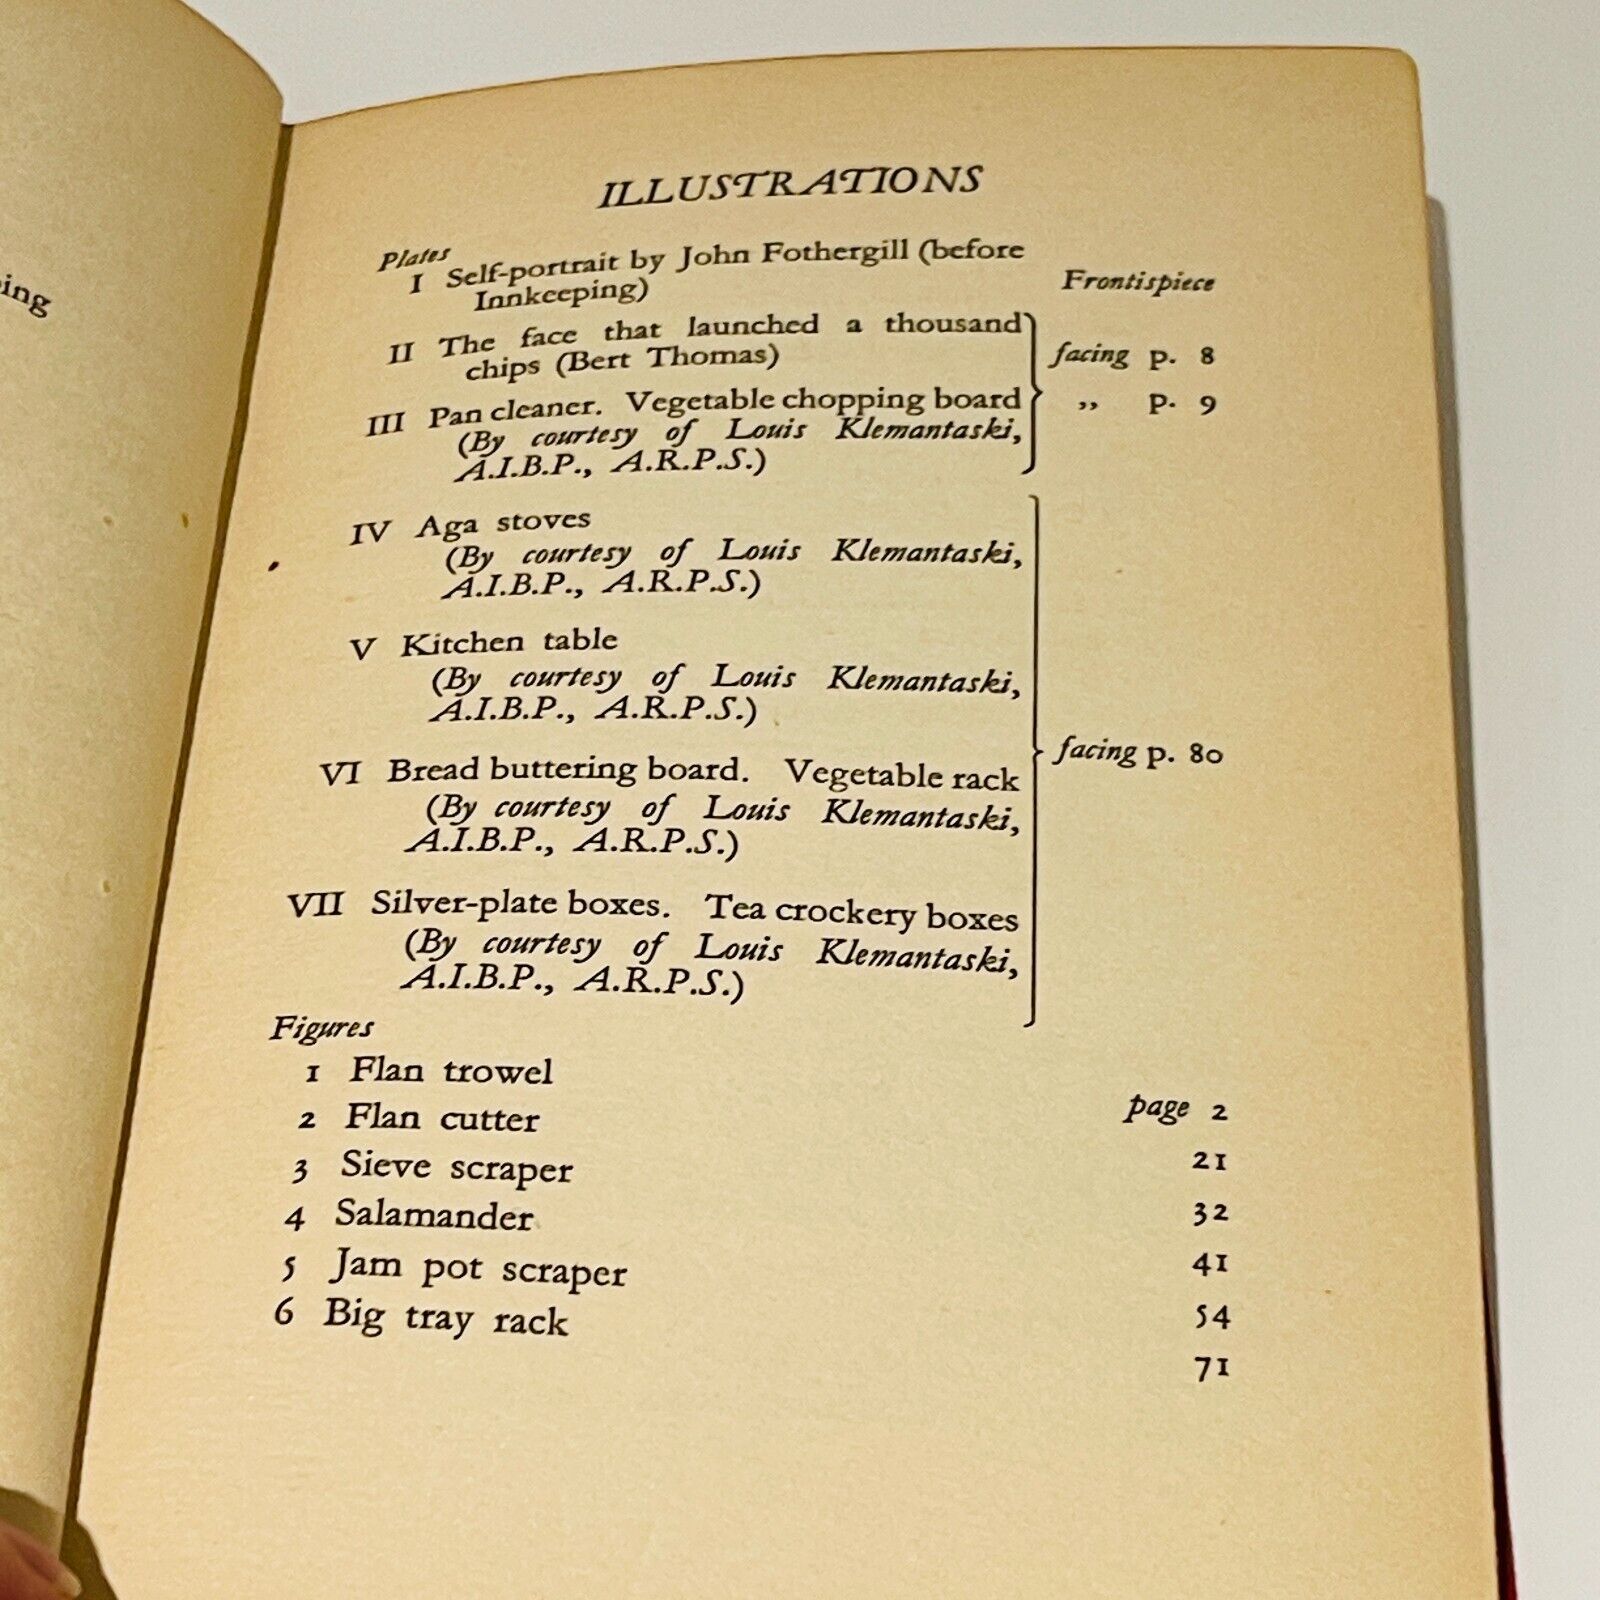 ing
ILLUSTRATIONS
Plates
I Self-portrait by John Fothergill (before
Innkeeping) Frontispiece
II The face that launched a thousand
chips (Bert Thomas) facing p. 8
III Pan cleaner. Vegetable chopping board ,, p. 9
(By courtesy of Louis Klemantaski,
A.I.B.P., A.R.P.S.)
IV Aga stoves
(By courtesy of Louis Klemantaski,
A.I.B.P., A.R.P.S.)
V Kitchen table
(By courtesy of Louis Klemantaski,
A.I.B.P., A.R.P.S.)
VI Bread buttering board. Vegetable rack facing p. 80
(By courtesy of Louis Klemantaski,
A.I.B.P., A.R.P.S.)
VII Silver-plate boxes. Tea crockery boxes
(By courtesy of Louis Klemantaski,
A.I.B.P., A.R.P.S.)
Figures
1 Flan trowel page 2
2 Flan cutter 21
3 Sieve scraper 32
4 Salamander 41
5 Jam pot scraper 54
6 Big tray rack 71